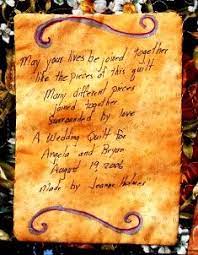 May your lives be joined together
like the pieces of this quilt
Many different pieces
joined together
Surrounded by love
A Wedding Quilt for
Angela and Bryan
August 19, 2006
made by Jeanne Holmes